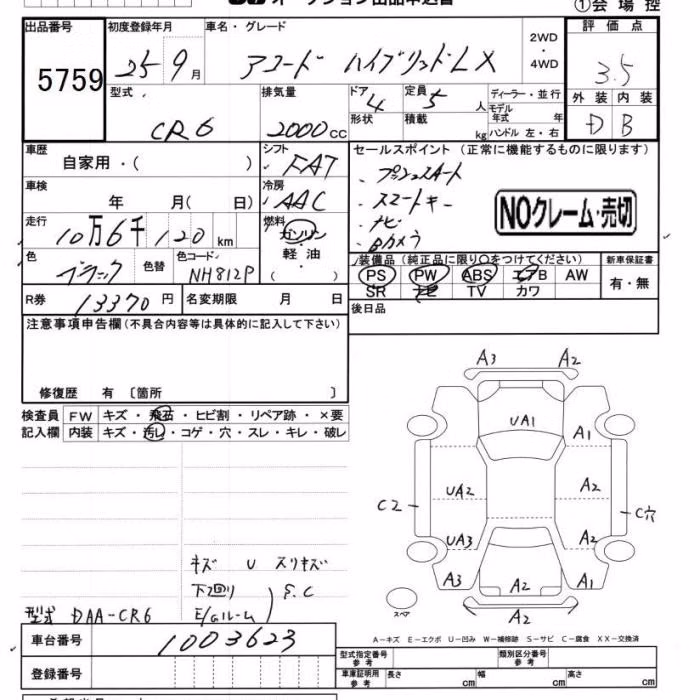 ①会 場 控
オークション出品申込書
出品番号 初度登録年月 車名・グレード 2WD・4WD 評 価 点
5759 25 9月 アコード ハイブリッド LX 3.5
型式 排気量 ドア 定員 ディーラー・並行 外 装 内 装
CR6 2000cc 4 5人 モデル年式 年 D B
形状 積載 kg ハンドル 左・右
車歴 シフト セールスポイント (正常に機能するものに限ります)
自家用・( ) FAT ・プッシュスタート
車検 冷房 ・スマートキー
年 月( 日) AAC ・ナビ NOクレーム・売切
走行 燃料 ・Bカメラ
10万6千120km ガソリン・軽油・( )
色 色替 色コード 装備品 (純正品に限り○をつけてください) 新車保証書
ブラック NH812P PS PW ABS エアB AW 有・無
SR ナビ TV カワ
R券 13370円 名変期限 月 日 後日品
注意事項申告欄(不具合内容等は具体的に記入して下さい)
修復歴 有 〔箇所 〕
検査員 FW キズ・飛石・ヒビ割・リペア跡・×要
記入欄 内装 キズ・汚レ・コゲ・穴・スレ・キレ・破レ
A3 A2
UA1
A1
UA2 A2
C2 C穴
UA3 A2
A3 A2 A1
スペア A2
キズ U スリキズ
下廻り
E/Gルーム S.C
型式 DAA-CR6
A－キズ E－エクボ U－凹み W－補修跡 S－サビ C－腐食 XX－交換済
車台番号 1003623
型式指定番号 参考 類別区分番号 参考
登録番号 車庫証明用 参考 長さ cm 幅 cm 高さ cm